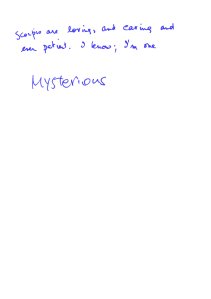 Scorpio are loving, and caring and
even patient. I know; I'm one
Mysterious